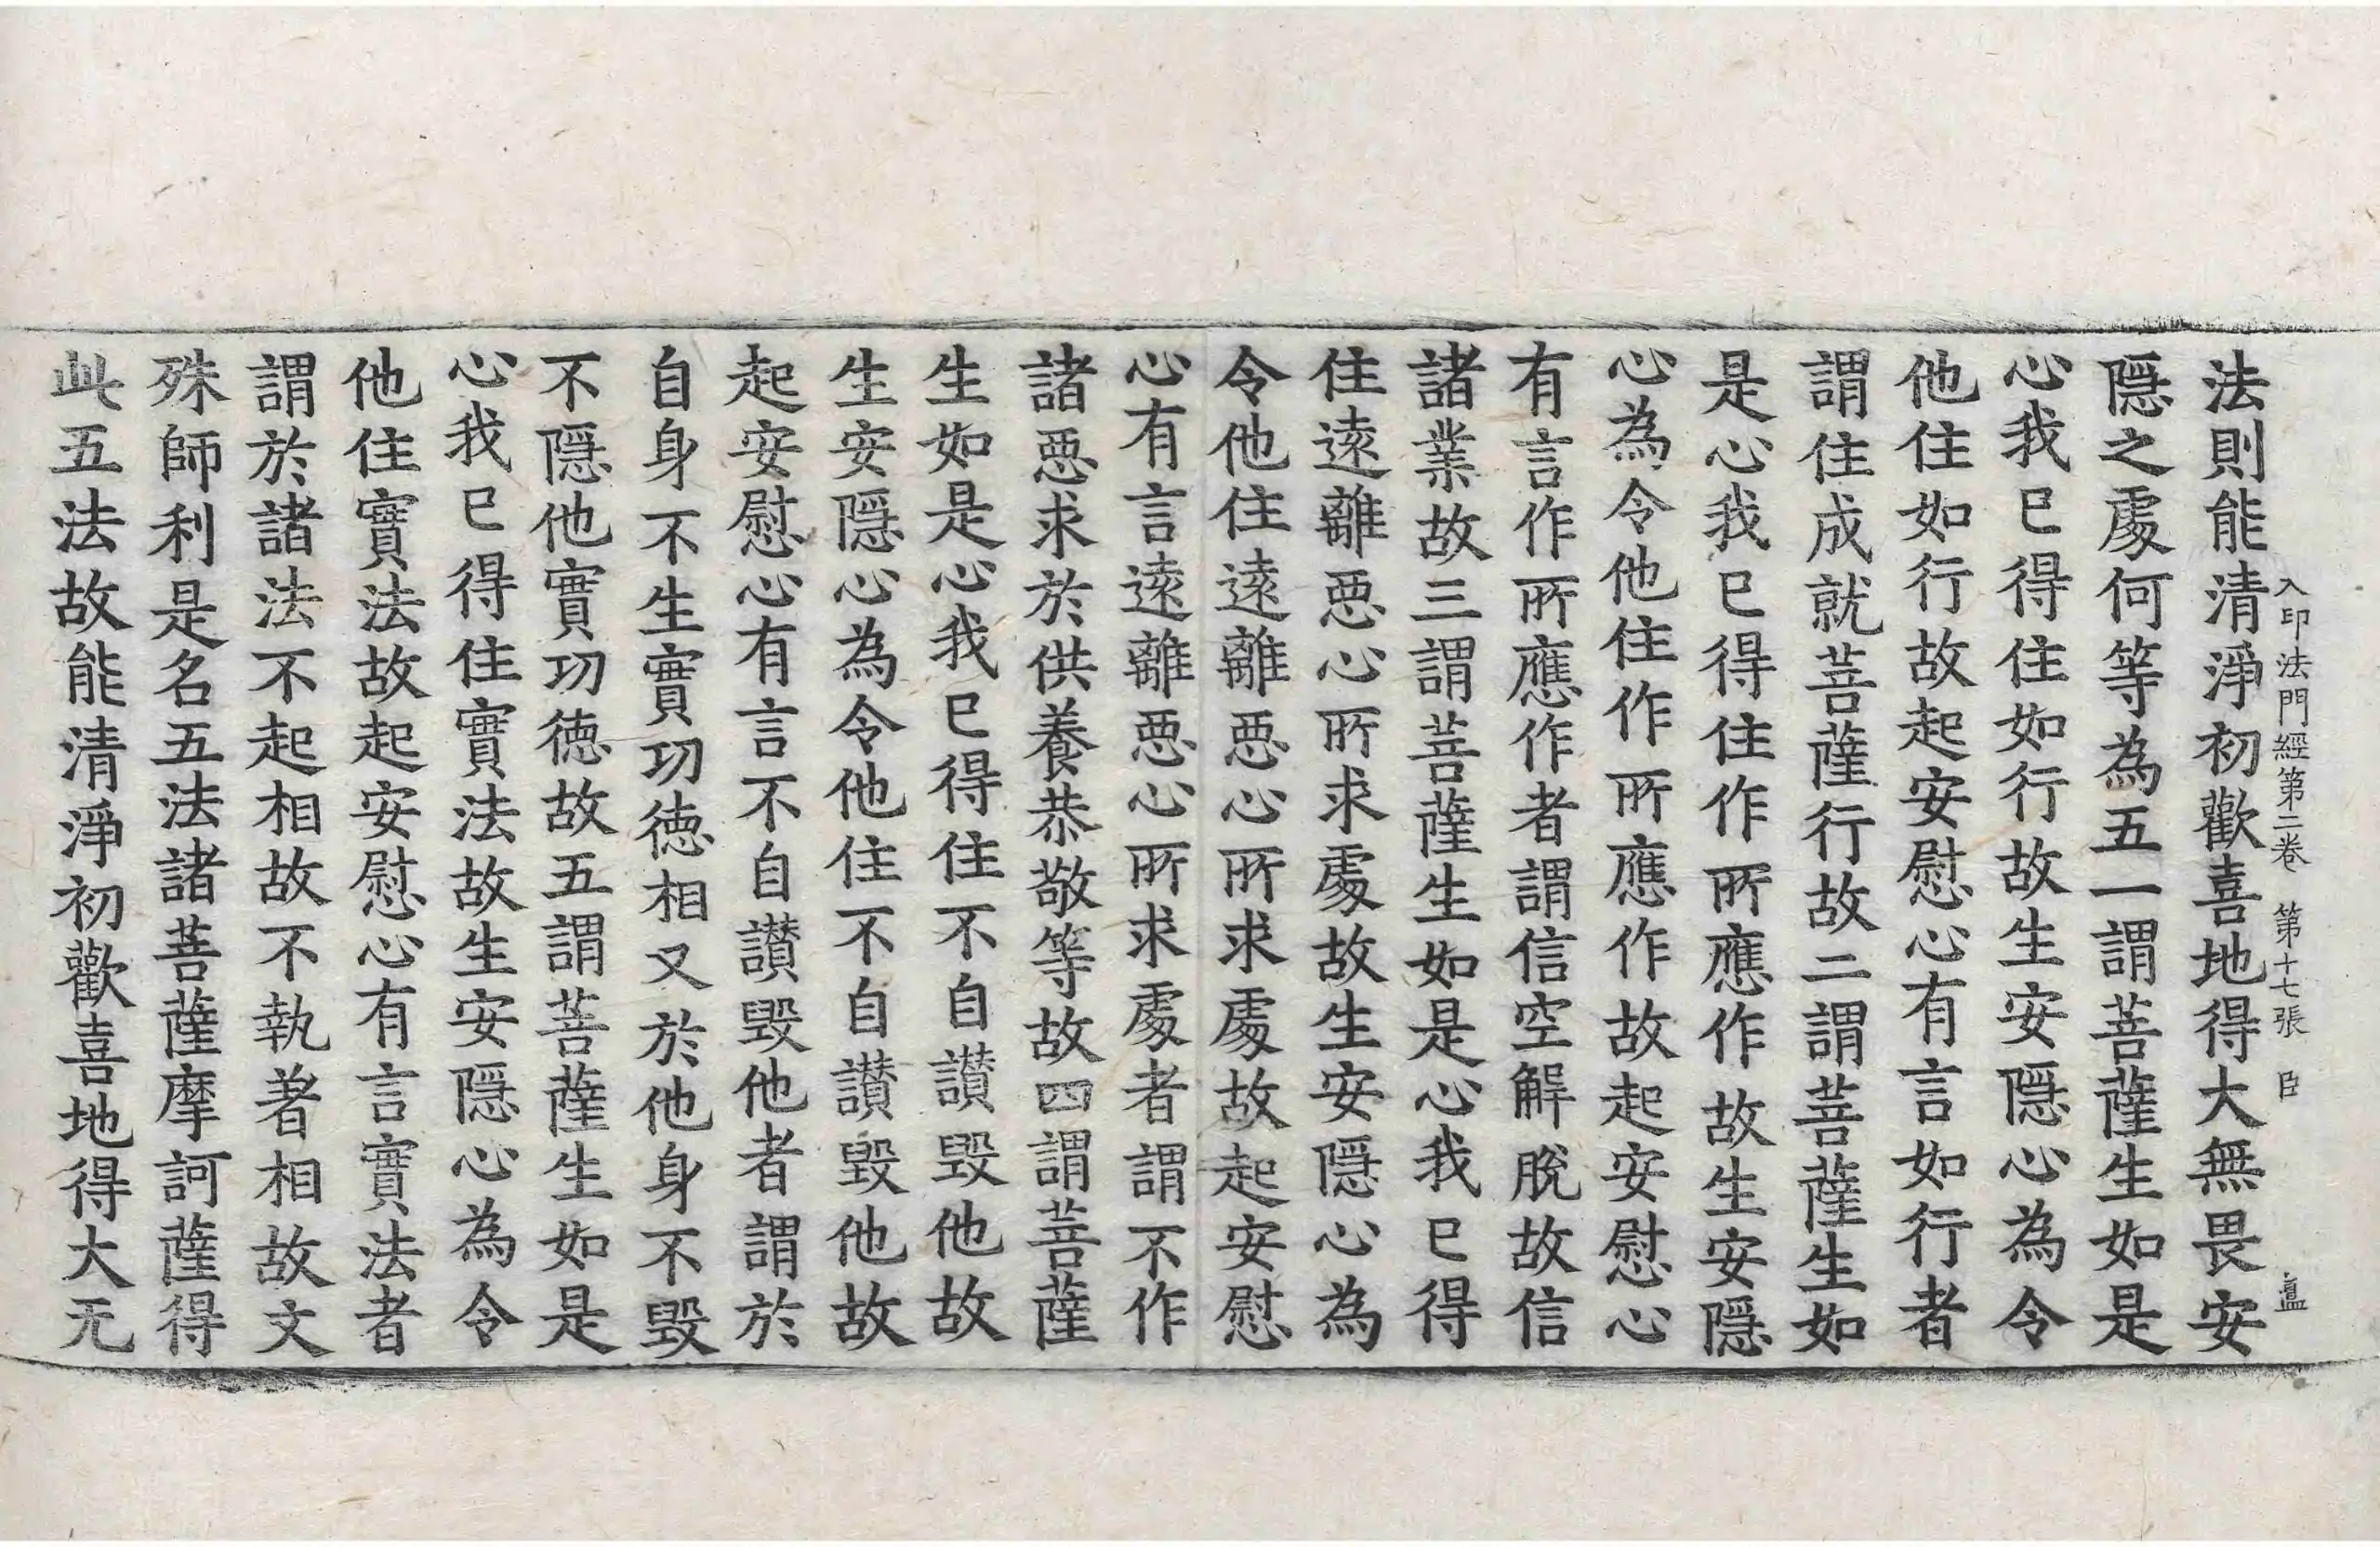 入印法門經第二卷 第十七張 臣 𥁕
法則能清淨初歡喜地得大無畏安
隱之處何等為五一謂菩薩生如是
心我已得住如行故生安隱心為令
他住如行故起安慰心有言如行者
謂住成就菩薩行故二謂菩薩生如
是心我已得住作所應作故生安隱
心為令他住作所應作故起安慰心
有言作所應作者謂信空解脫故信
諸業故三謂菩薩生如是心我已得
住遠離惡心所求處故生安隱心為
令他住遠離惡心所求處故起安慰
心有言遠離惡心所求處者謂不作
諸惡求於供養恭敬等故四謂菩薩
生如是心我已得住不自讃毀他故
生安隱心為令他住不自讃毀他故
起安慰心有言不自讃毀他者謂於
自身不生實功德相又於他身不毀
不隱他實功德故五謂菩薩生如是
心我已得住實法故生安隱心為令
他住實法故起安慰心有言實法者
謂於諸法不起相故不執著相故文
殊師利是名五法諸菩薩摩訶薩得
此五法故能清淨初歡喜地得大无